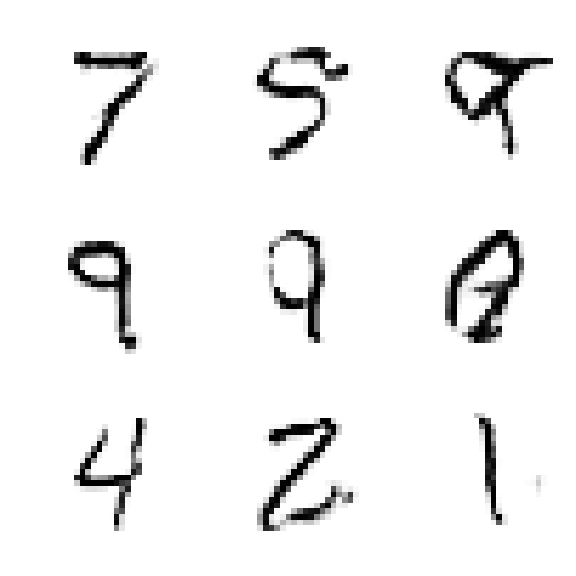 7 5 9
9 9
4 2 1